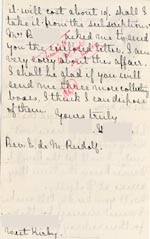 it will cost about 10/. shall I
take it from the subscriptions.
Mrs B asked me to send
you the enclosed letter, I am
very sorry about this affair.
I shall be glad if you will
send me three more collecting
boxes, I think I can dispose
of them.
Yours truly
Rev. E. de M. Rudolf.
West Kirby.